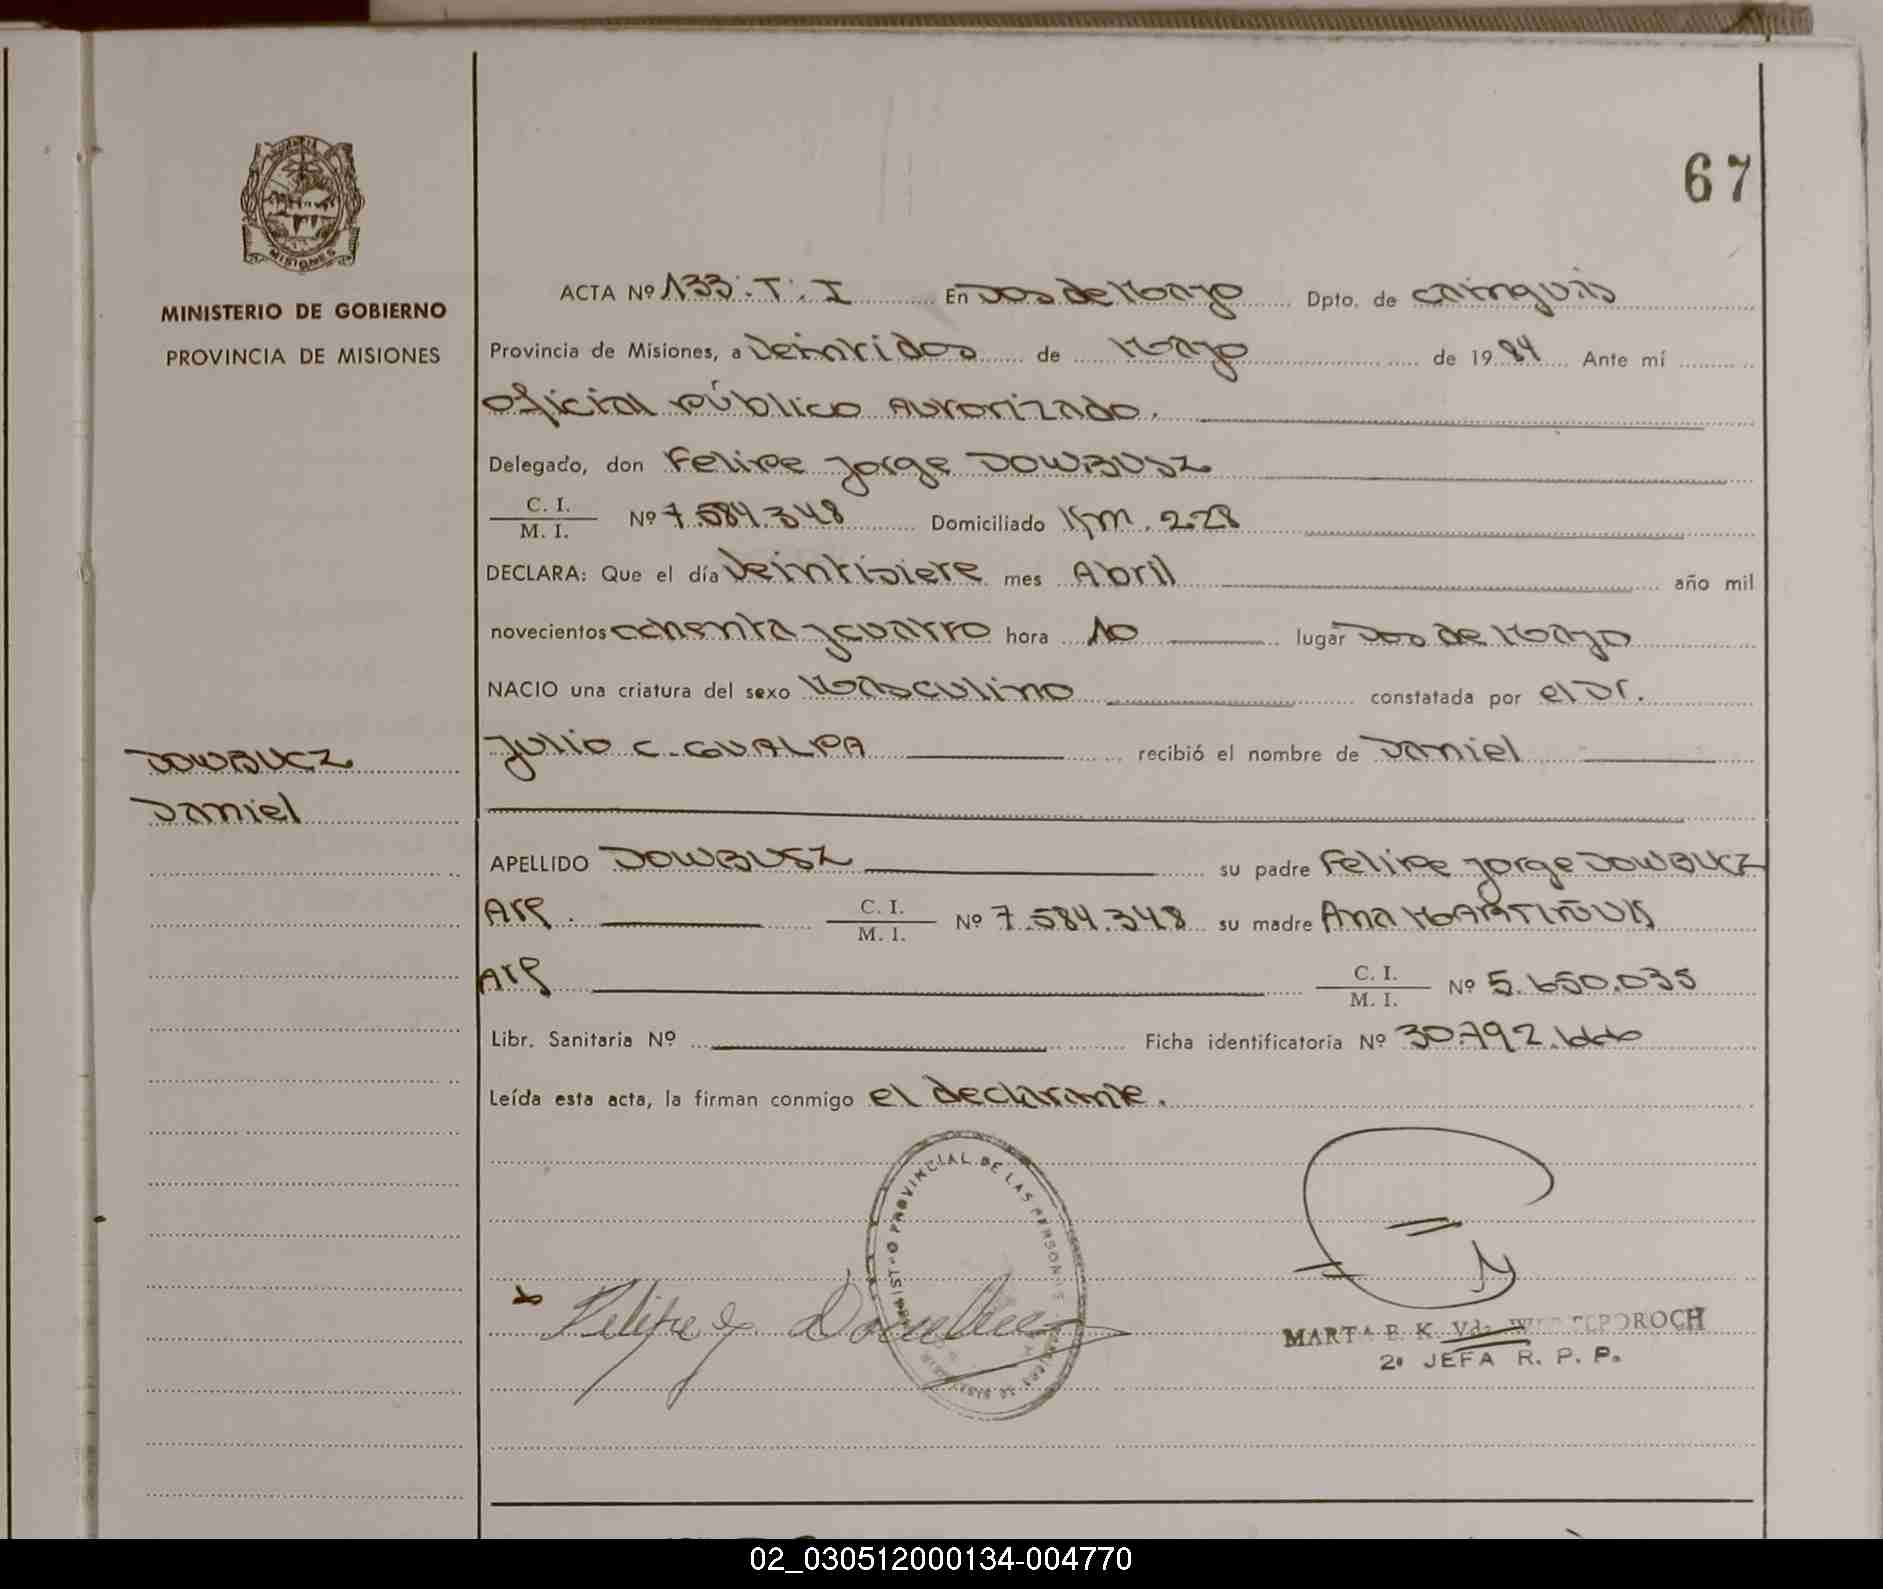 67
MISIONES
MINISTERIO DE GOBIERNO
PROVINCIA DE MISIONES
ACTA Nº 133. T. I En Dos de Mayo Dpto. de Cainguás
Provincia de Misiones, a Veintidos de Mayo de 1984 Ante mí
Oficial público Autorizado.
Delegado, don Felipe Jorge DOWBUSZ
C. I.
M. I. Nº 7.584.348 Domiciliado Km. 228
DECLARA: Que el día Veintisiete mes Abril año mil
novecientos ochenta y cuatro hora 10 lugar Dos de Mayo
NACIO una criatura del sexo Masculino constatada por el Dr.
Julio C. GUALPA recibió el nombre de Daniel
DOWBUCZ
Daniel
APELLIDO DOWBUSZ su padre Felipe Jorge DOWBUCZ
Arg. C. I.
M. I. Nº 7.584.348 su madre Ana
Arg C. I.
M. I. Nº 5.650.035
Libr. Sanitaria Nº Ficha identificatoria Nº 30.792.666
Leída esta acta, la firman conmigo el declarante.
PROVINCIAL DE LAS PERSONAS
Felipe J Dowbucz
MARTA E. K. Vda.
2º JEFA R. P. P.
02_030512000134-004770